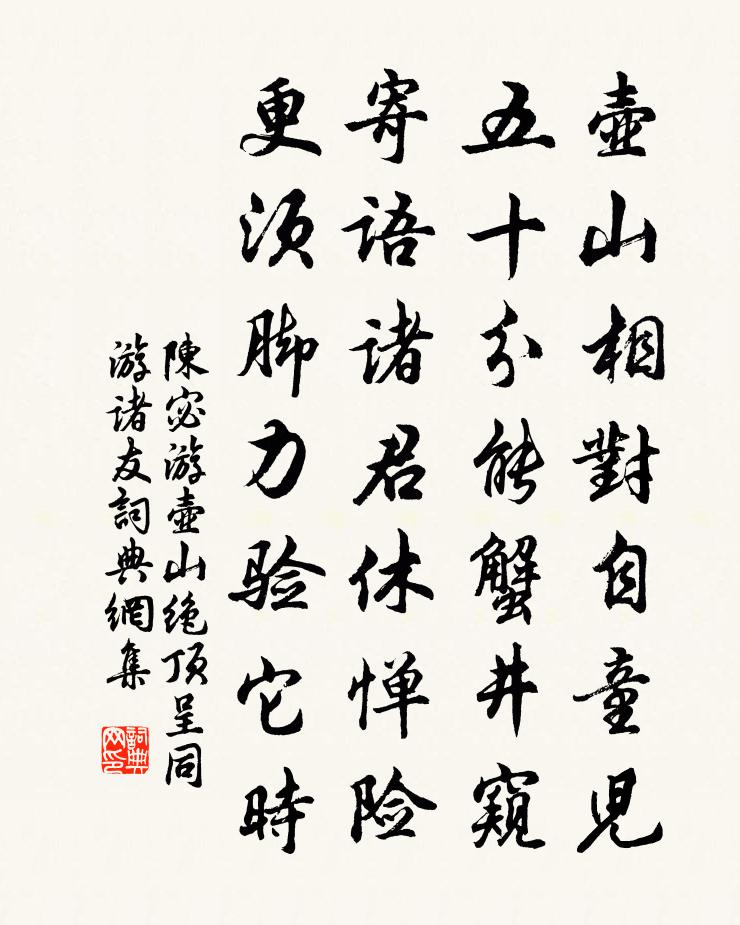 壺山相對自童児
五十分能蟹井窺
寄語諸君休惮险
更须脚力验它時
陳宓游壺山绝顶呈同
游诸友詞典網集
詞典网印